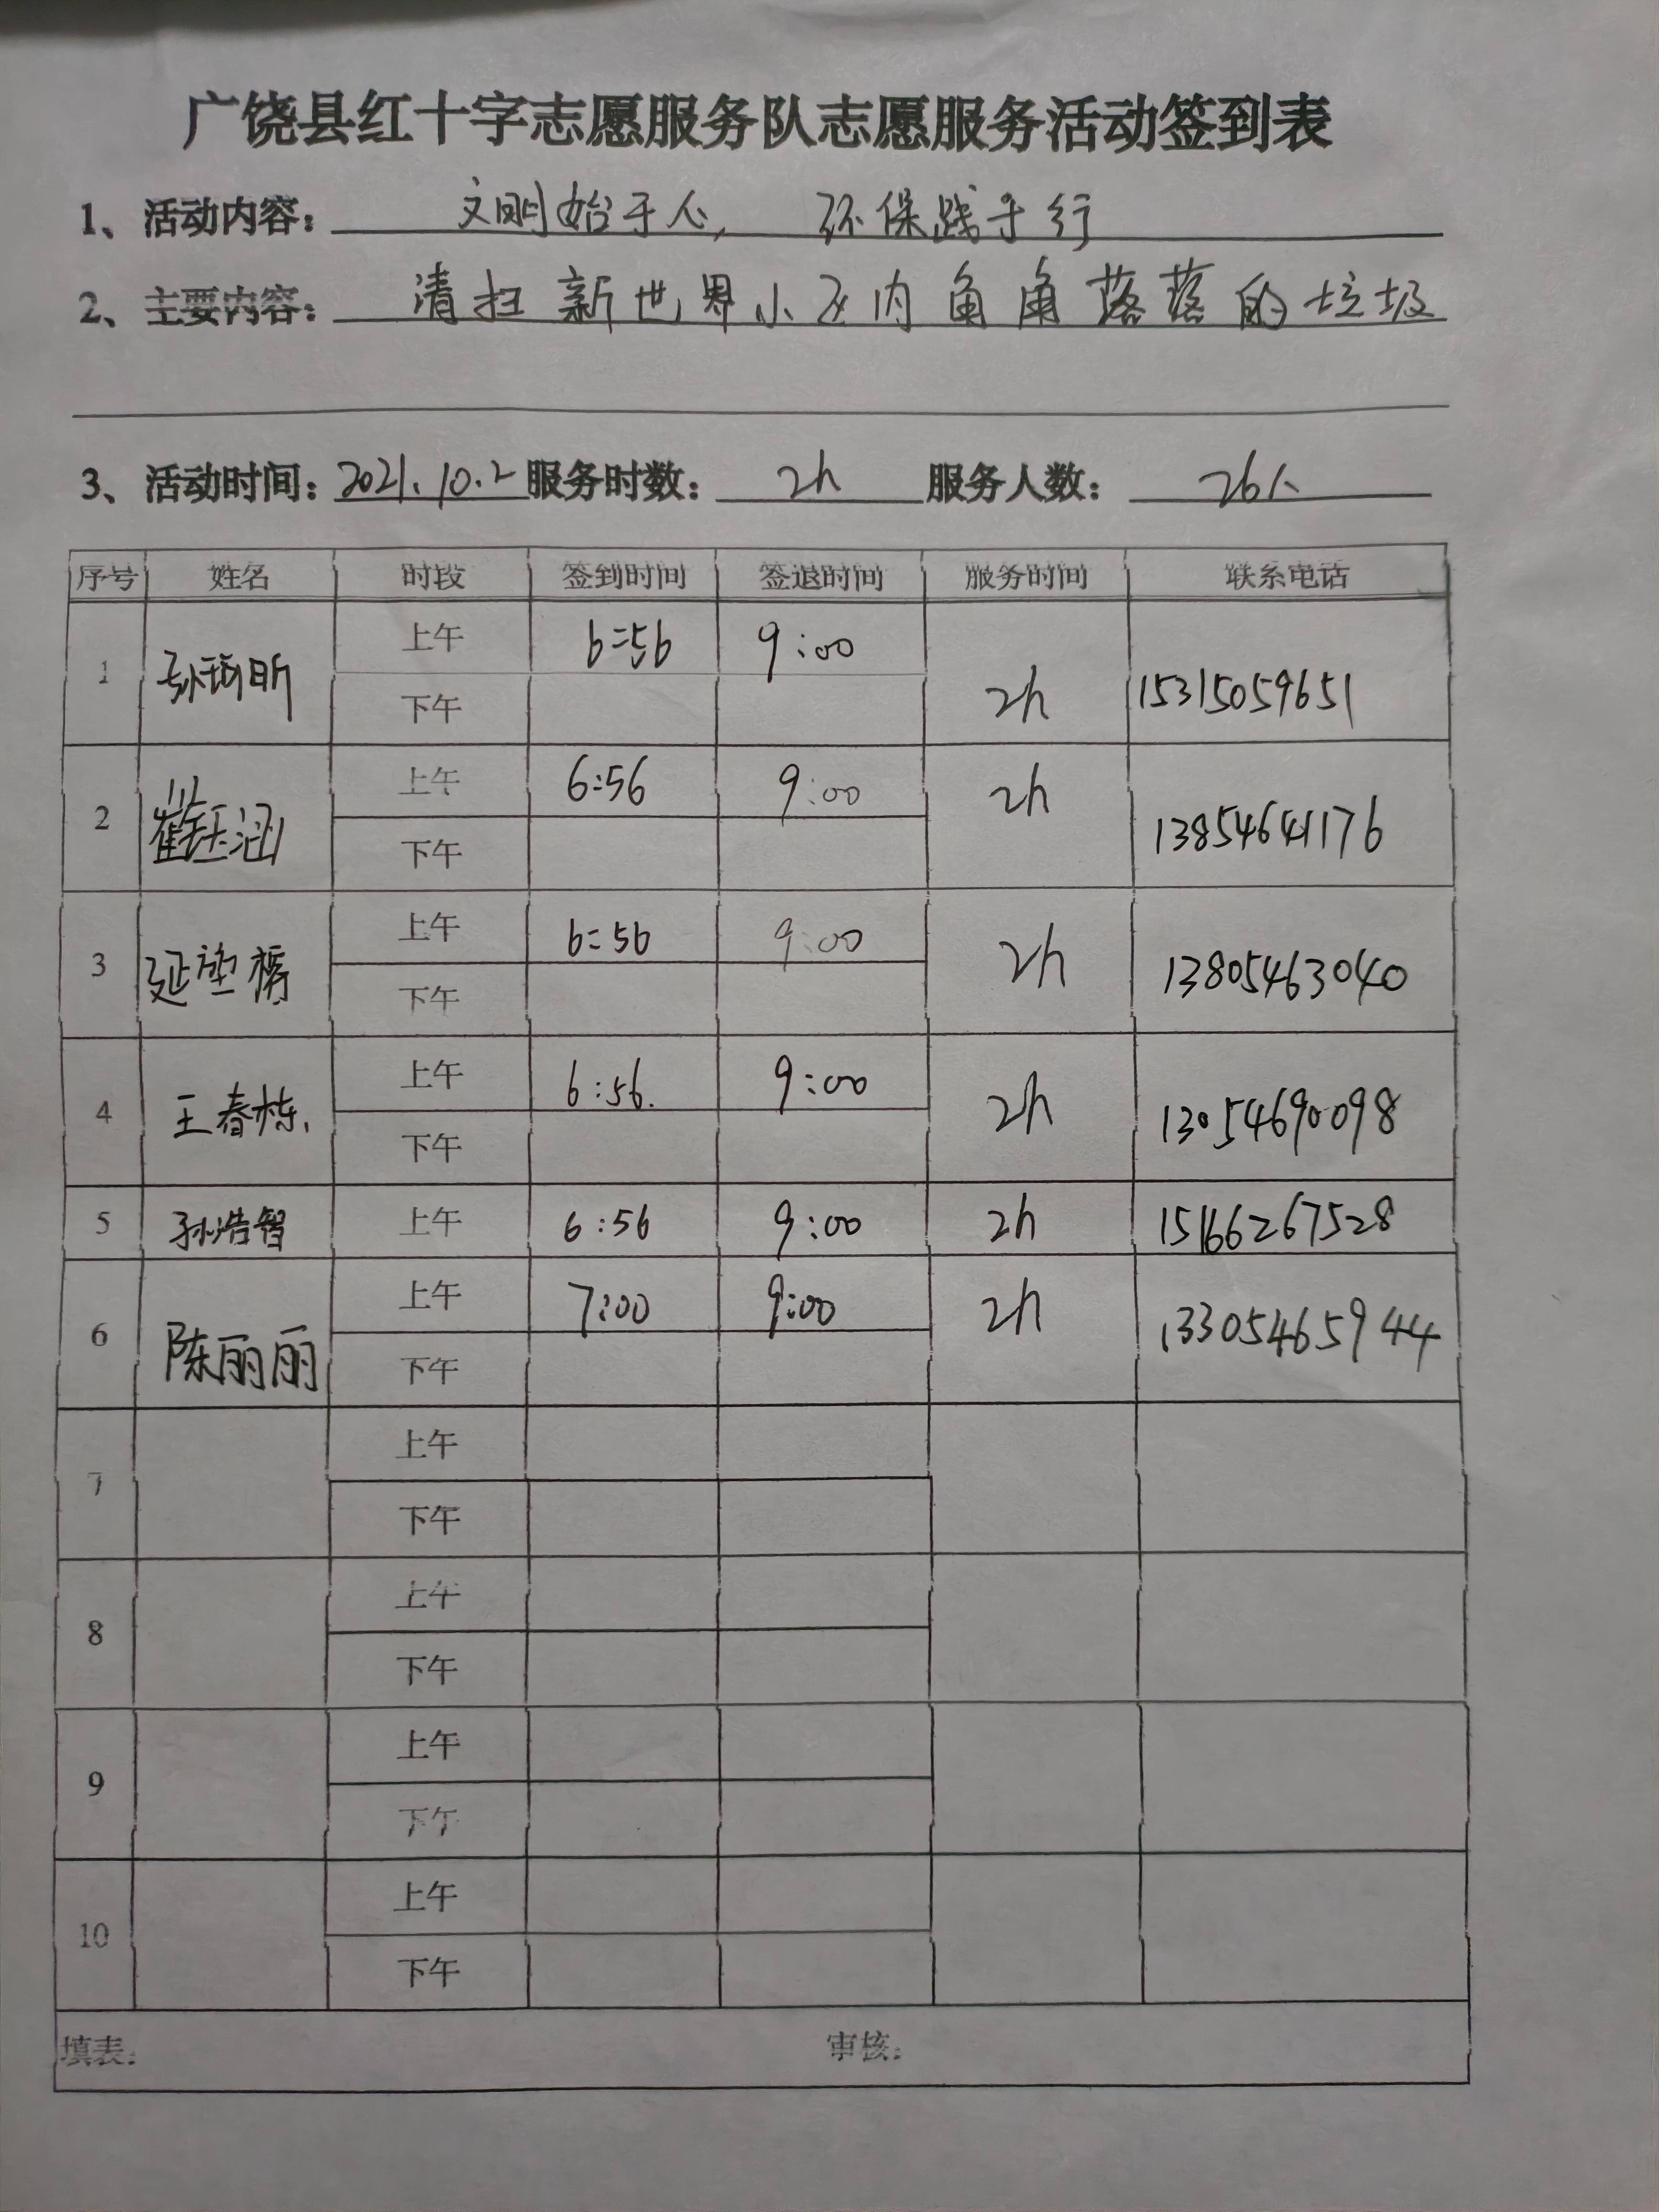 广饶县红十字志愿服务队志愿服务活动签到表
1、活动内容： 文明始于心， 环保践于行
2、主要内容： 清扫新世界小区内角角落落的垃圾
3、活动时间：2021.10.2 服务时数： 2h 服务人数： 26人
序号 姓名 时段 签到时间 签退时间 服务时间 联系电话
1 上午 6:56 9:00
下午 2h 15315059651
2 崔钰涵 上午 6:56 9:00 2h 13854641176
下午
3 上午 6:56 9:00 2h 13805463040
下午
4 王春栋 上午 6:56. 9:00 2h 13054690098
下午
5 孙浩智 上午 6:56 9:00 2h 15166267528
6 陈丽丽 上午 7:00 9:00 2h 13305465944
下午
7 上午
下午
8 上午
下午
9 上午
下午
10 上午
下午
填表： 审核：